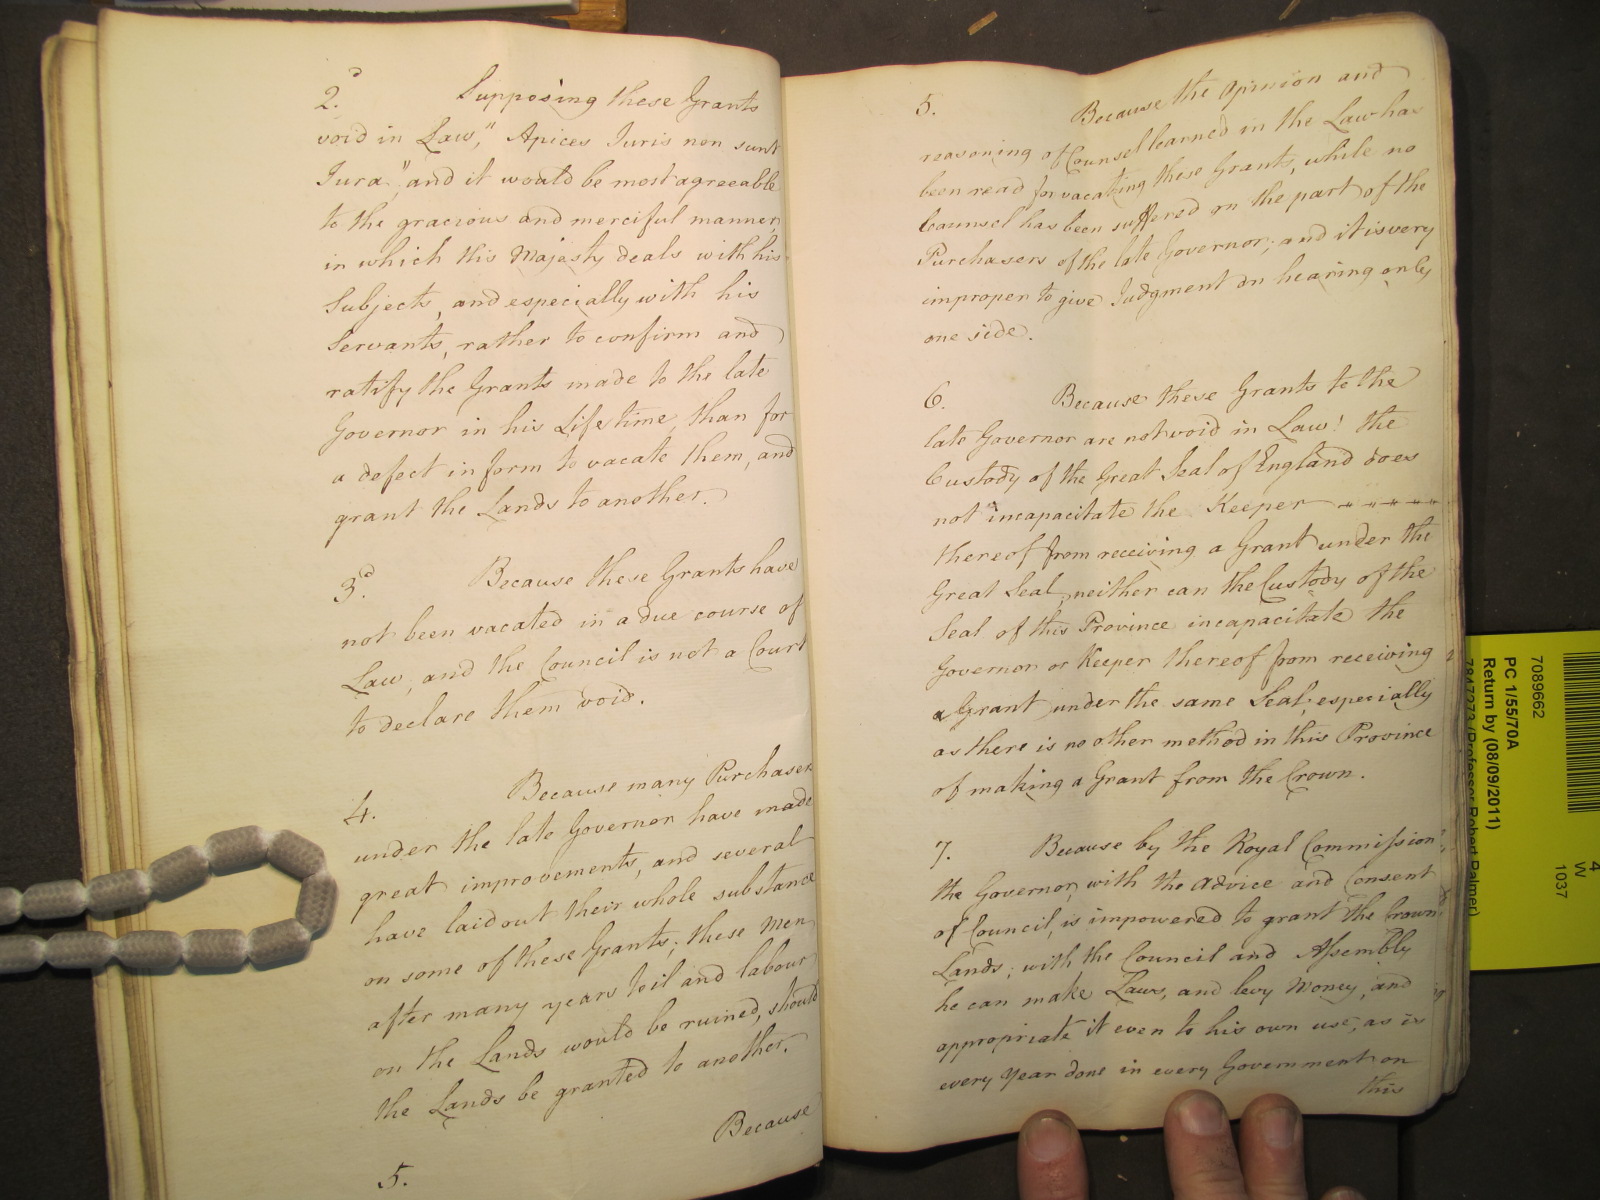 2.d Supposing these Grants
void in Law, "Apices Juris non sunt
Jura," and it would be most agreeable
to the gracious and merciful manner,
in which His Majesty deals with his
Subjects, and especially with his
Servants, rather to confirm and
ratify the Grants made to the late
Governor in his Lifetime, than for
a defect in form to vacate them, and
grant the Lands to another.
3.d Because these Grants have
not been vacated in a due course of
Law, and the Council is not a Court
to declare them void.
4. Because many Purchasers
under the late Governor have made
great improvements, and several
have laid out their whole substance
on some of these Grants; these Men
after many years toil and labour
on the Lands would be ruined, should
the Lands be granted to another.
Because
5.
5. Because the Opinion and
reasoning of Counsel learned in the Law has
been read for vacating these Grants, while no
Counsel has been suffered on the part of the
Purchasers of the late Governor; and it is very
improper to give Judgment on hearing only
one side.
6. Because these Grants to the
late Governor are not void in Law! the
Custody of the Great Seal of England does
not incapacitate the Keeper
thereof from receiving a Grant under the
Great Seal, neither can the Custody of the
Seal of this Province incapacitate the
Governor or Keeper thereof from receiving
a Grant under the same Seal, especially
as there is no other method in this Province
of making a Grant from the Crown.
7. Because by the Royal Commission
the Governor, with the Advice and Consent
of Council, is impowered to grant the Crown
Lands; with the Council and Assembly
he can make Laws, and levy Money, and
appropriate it even to his own use, as is
every Year done in every Government on
this
4
W
1037
7089662
PC 1/55/70A
Return by (08/09/2011)
7847273 (Professor Robert Palmer)